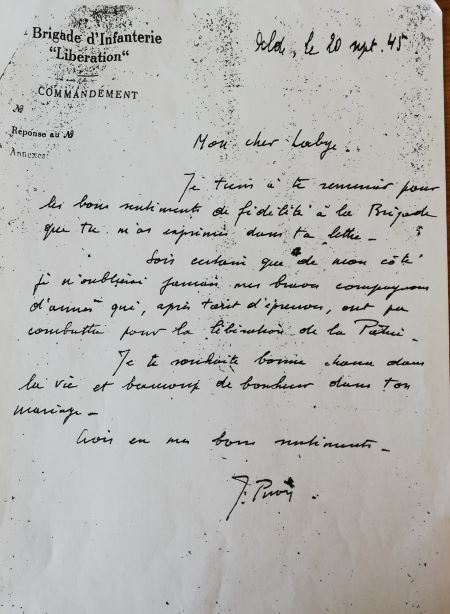 Brigade d'Infanterie
"Libération"
COMMANDEMENT
le 20 sept. 45
№
Réponse au №
Annexes:
Mon cher
Je tiens à te remercier pour
les bons sentiments de fidélité à la Brigade
que tu m'as exprimés dans ta lettre.
Sois certain que de mon côté
je n'oublierai jamais mes braves compagnons
d'armes qui, après tant d'épreuves, ont pu
combattre pour la libération de la Patrie.
Je te souhaite bonne chance dans
la vie et beaucoup de bonheur dans ton
mariage.
Crois en mes bons sentiments.